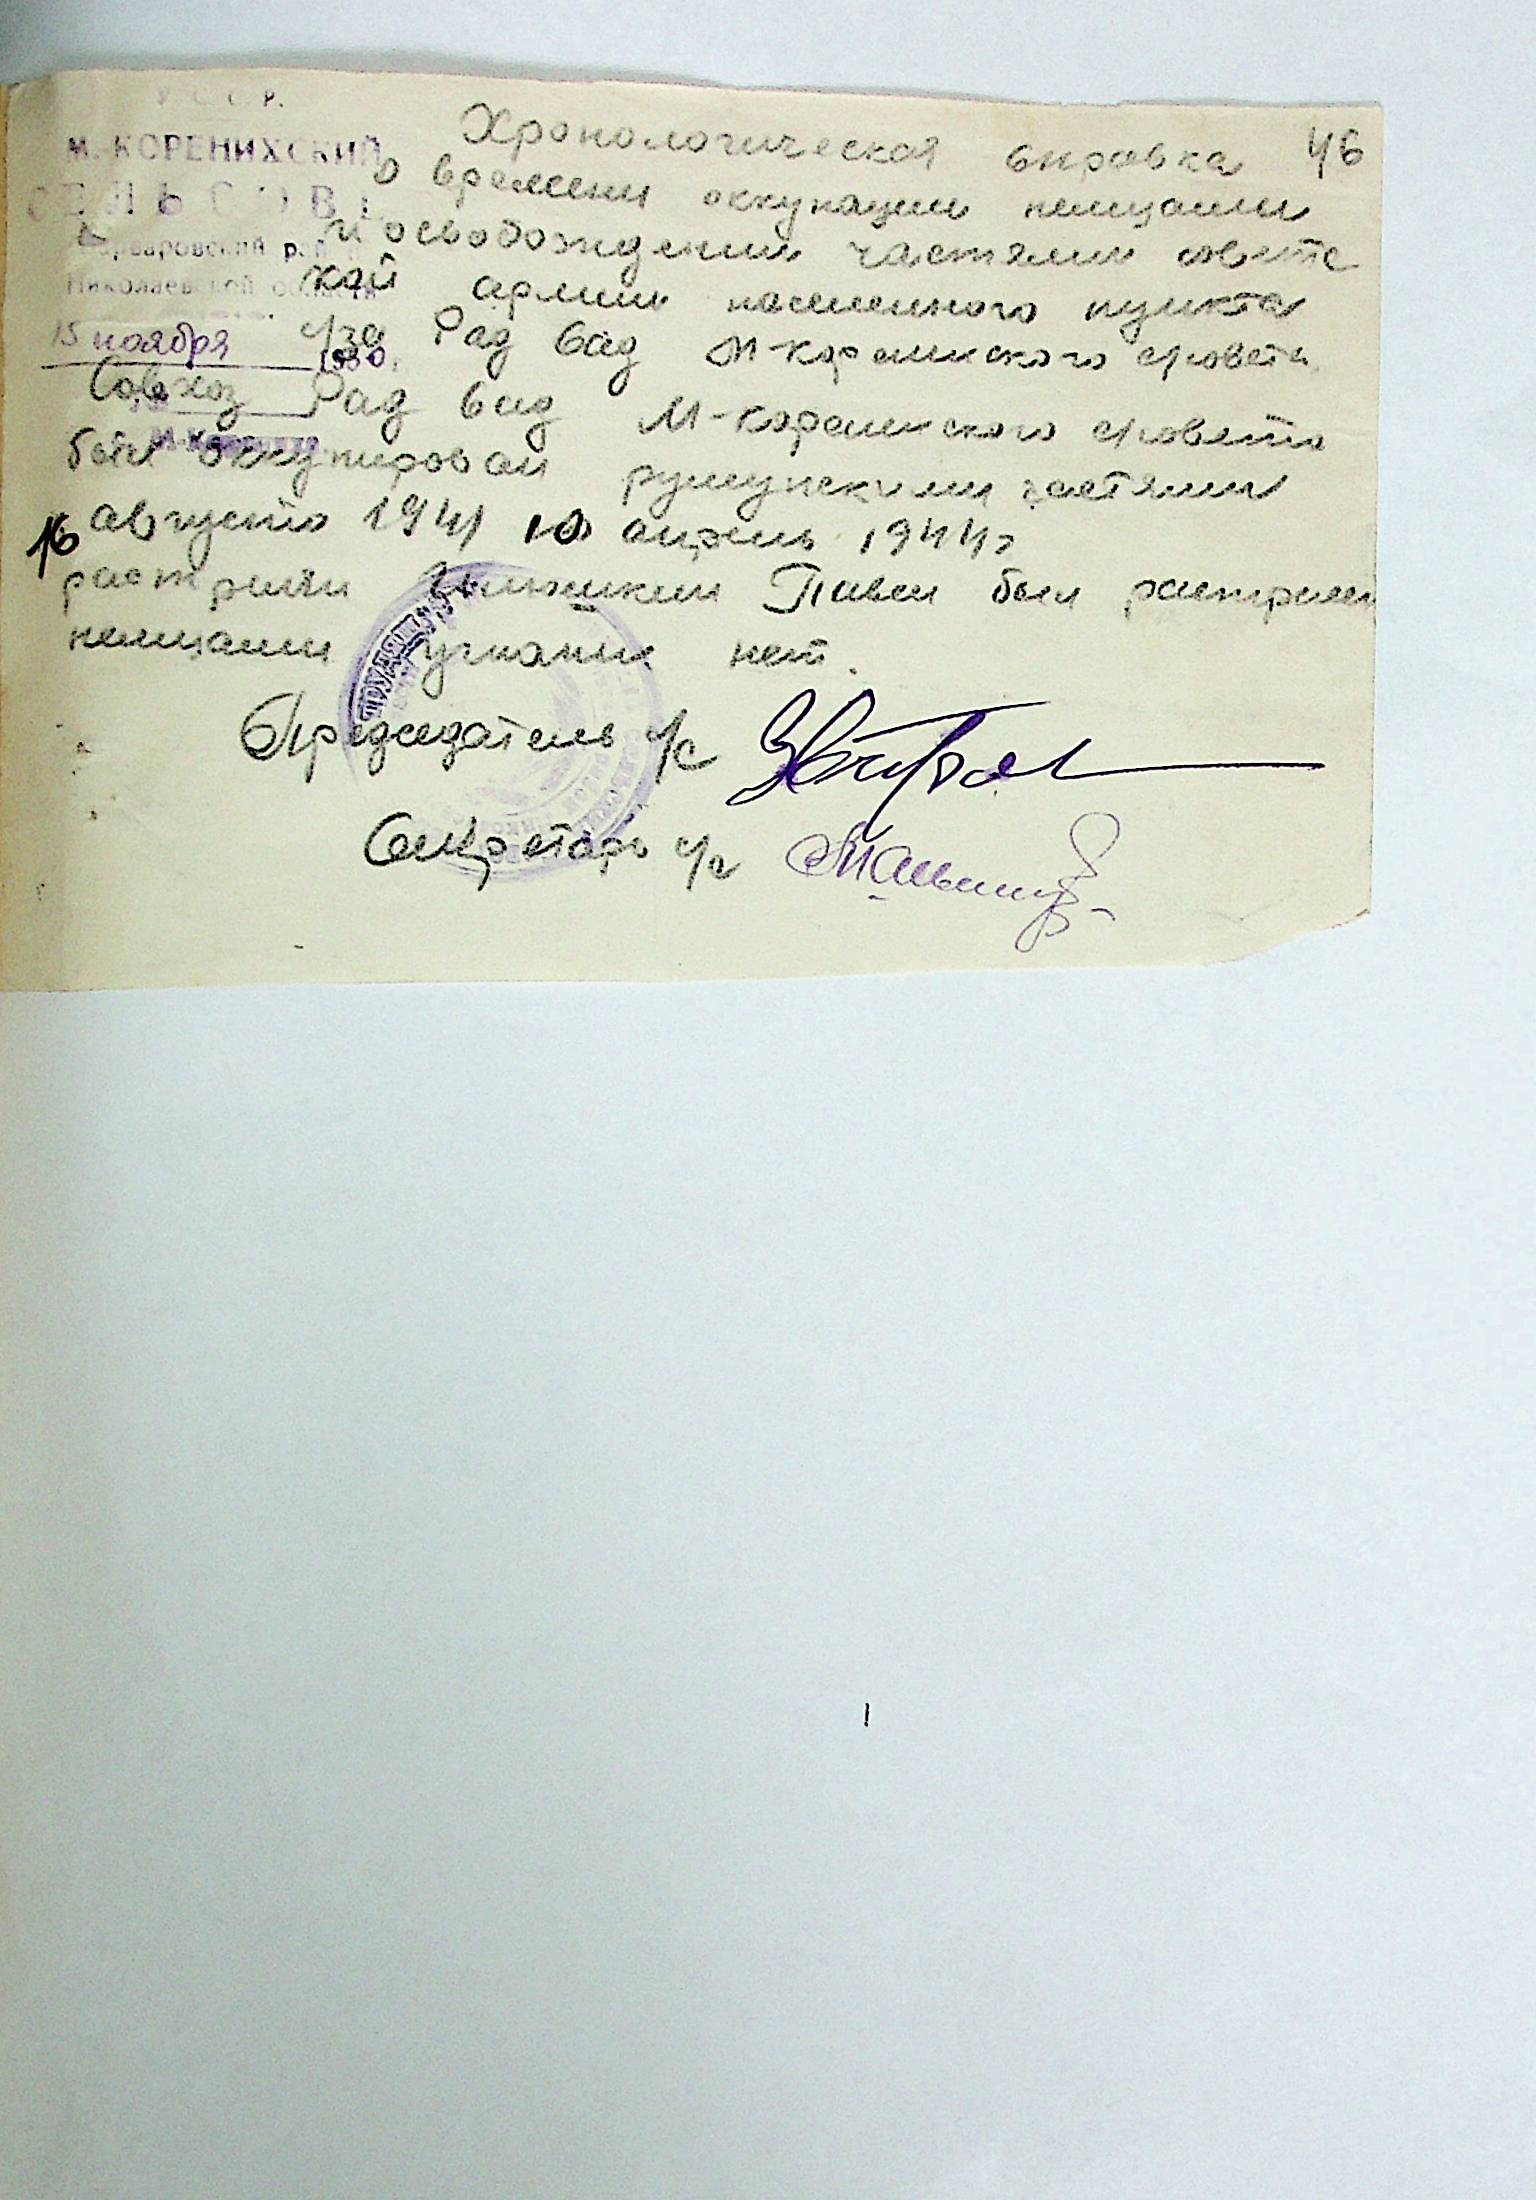 У С С Р.
М. КОРЕНИХСКИЙ
СЕЛЬСОВЕТ
Варваровский р.
Николаевской области
15 ноября 1950.
М-Корениха
46
Хронологическая справка
о времени оккупации немцами
и освобождении частями советс
кой армии населенного пункта
с/за Рад Сад М-Коренихского с/совета
Совхоз Рад Сад М-Коренихского с/совета
был оккупирован румунскими частями
16 августа 1941 10 апрель 1944г
растриляни Павел был растрилен
немцами угнаних нет.
Председатель с/с
Секретарь с/с